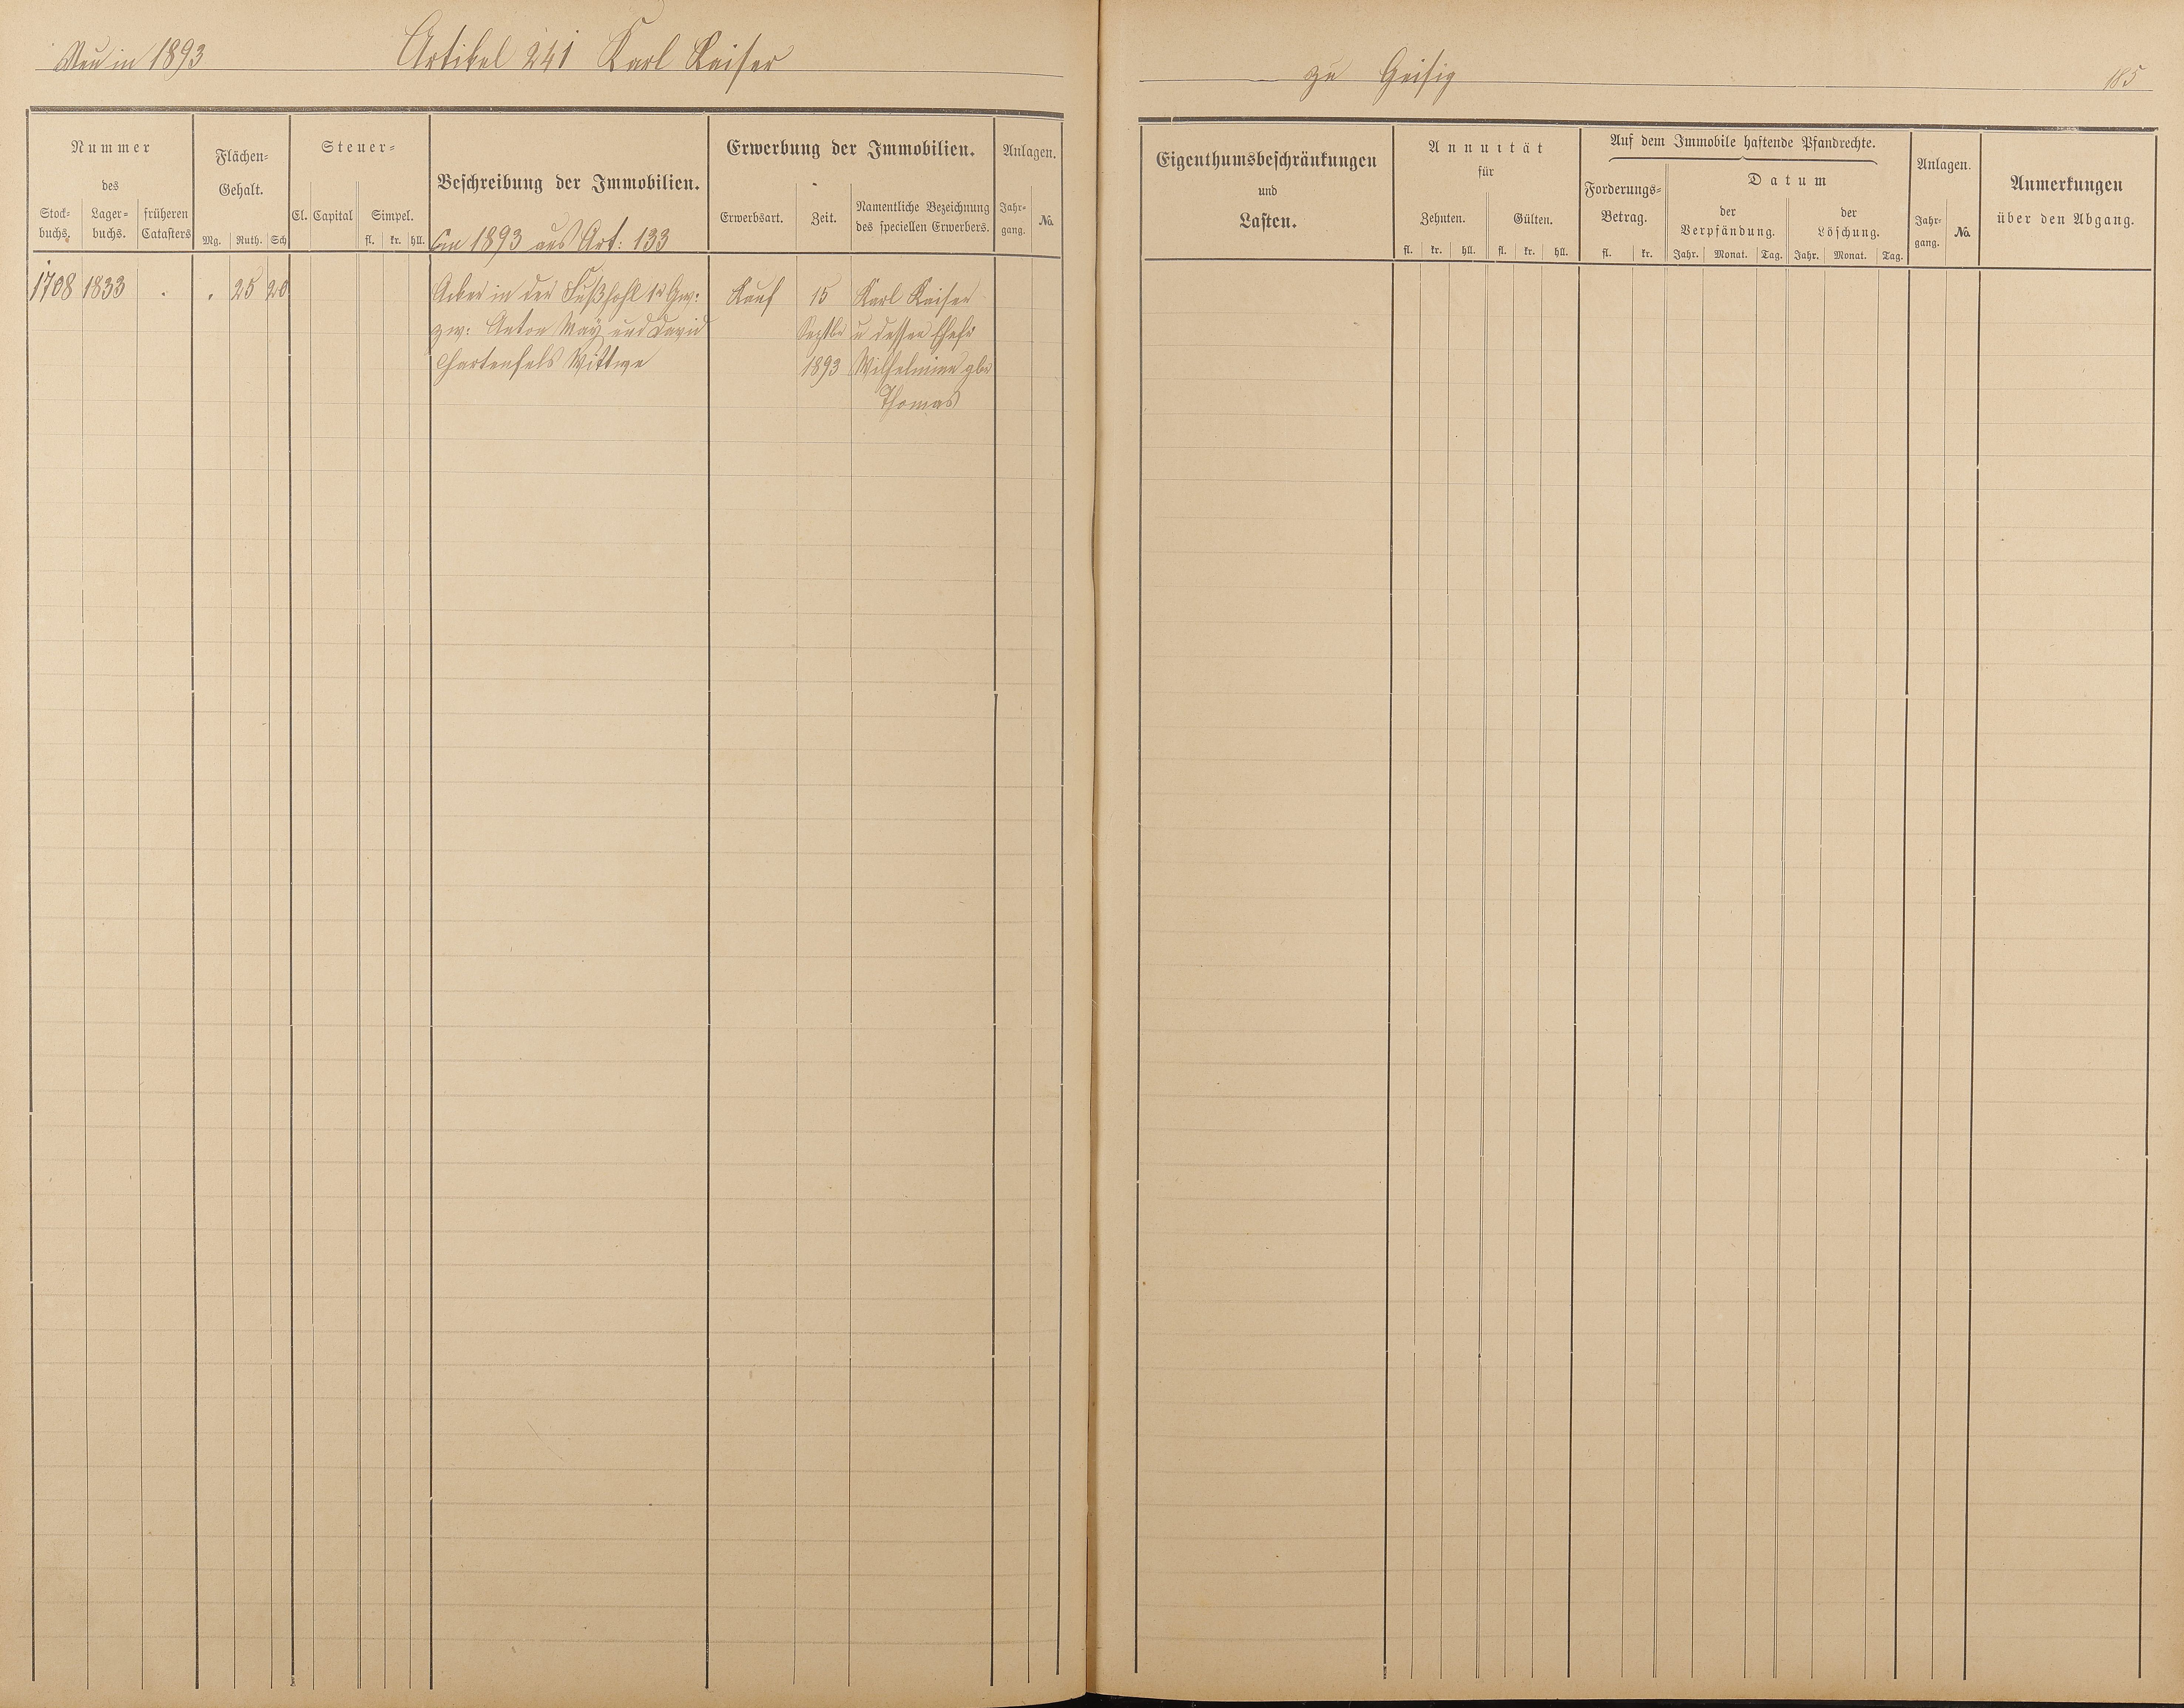 Neu in 1893 Artikel 241 Karl Kaiser
zu Geisig 185
Nummer
des
Stock-
buchs.
Lager-
buchs.
früheren
Catasters
Flächen-
Gehalt.
Mg. Ruth. Sch
Steuer-
Cl. Capital Simpel.
fl. kr. hll.
Beschreibung der Immobilien.
Erwerbung der Immobilien.
Erwerbsart. Zeit.
Namentliche Bezeichnung
des speciellen Erwerbers.
Anlagen.
Jahr-
gang.
No.
In 1893 aus Art: 133
1708 1833 . . 25 20 Acker in der Fußhohl 1r Gw: Kauf 15 Karl Kaiser
zw: Anton May und David Septbr u dessen Ehefr
Hartenfels Wittwe 1893 Wilhelmine gbr
Thomas
Eigenthumsbeschränkungen
und
Lasten.
Annuität
für
Zehnten. Gülten.
fl. kr. hll. fl. kr. hll.
Auf dem Immobile haftende Pfandrechte.
Forderungs-
Betrag.
fl. kr.
Datum
der
Verpfändung.
Jahr. Monat. Tag.
der
Löschung.
Jahr. Monat. Tag.
Anlagen.
Jahr-
gang.
No.
Anmerkungen
über den Abgang.